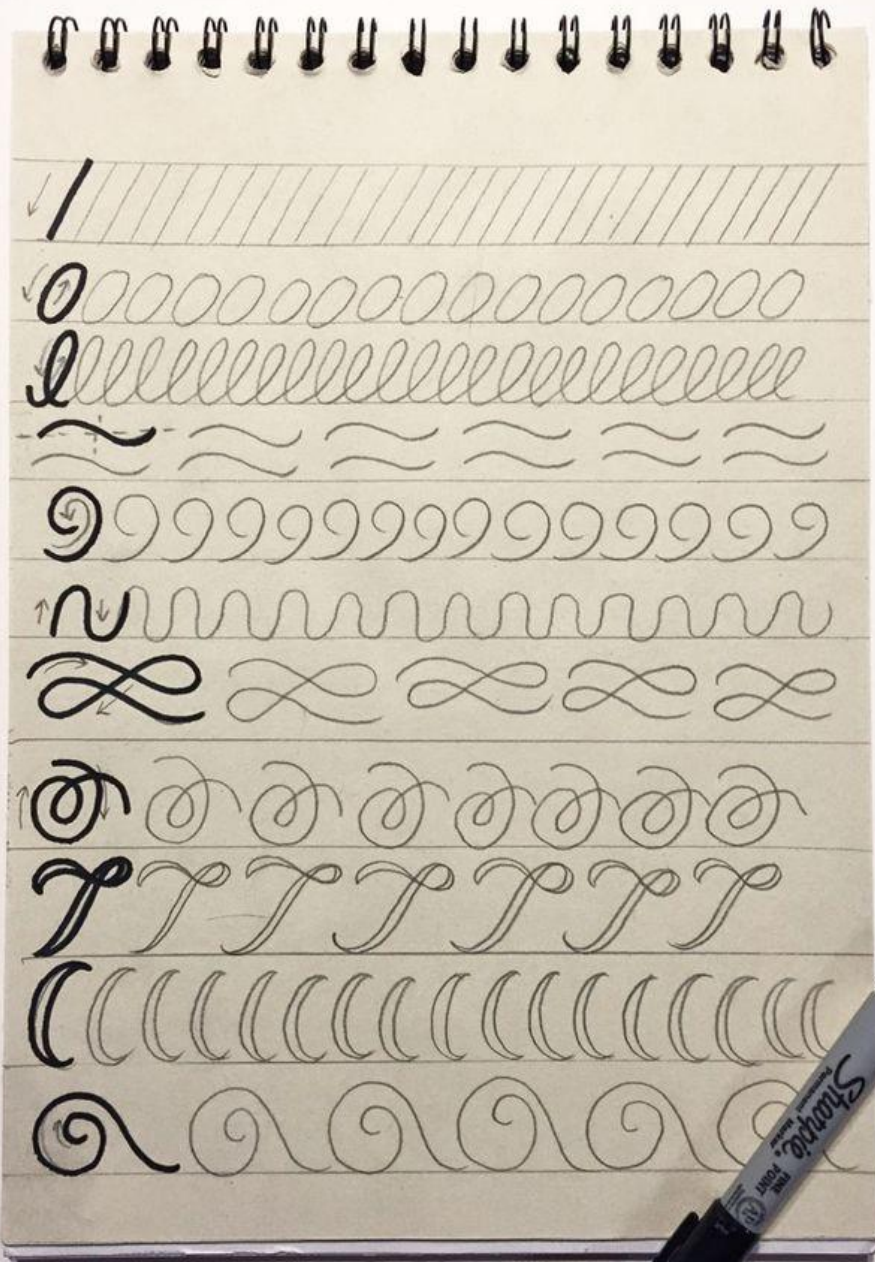 Sharpie
Permanent Marker
FINE
POINT
AP